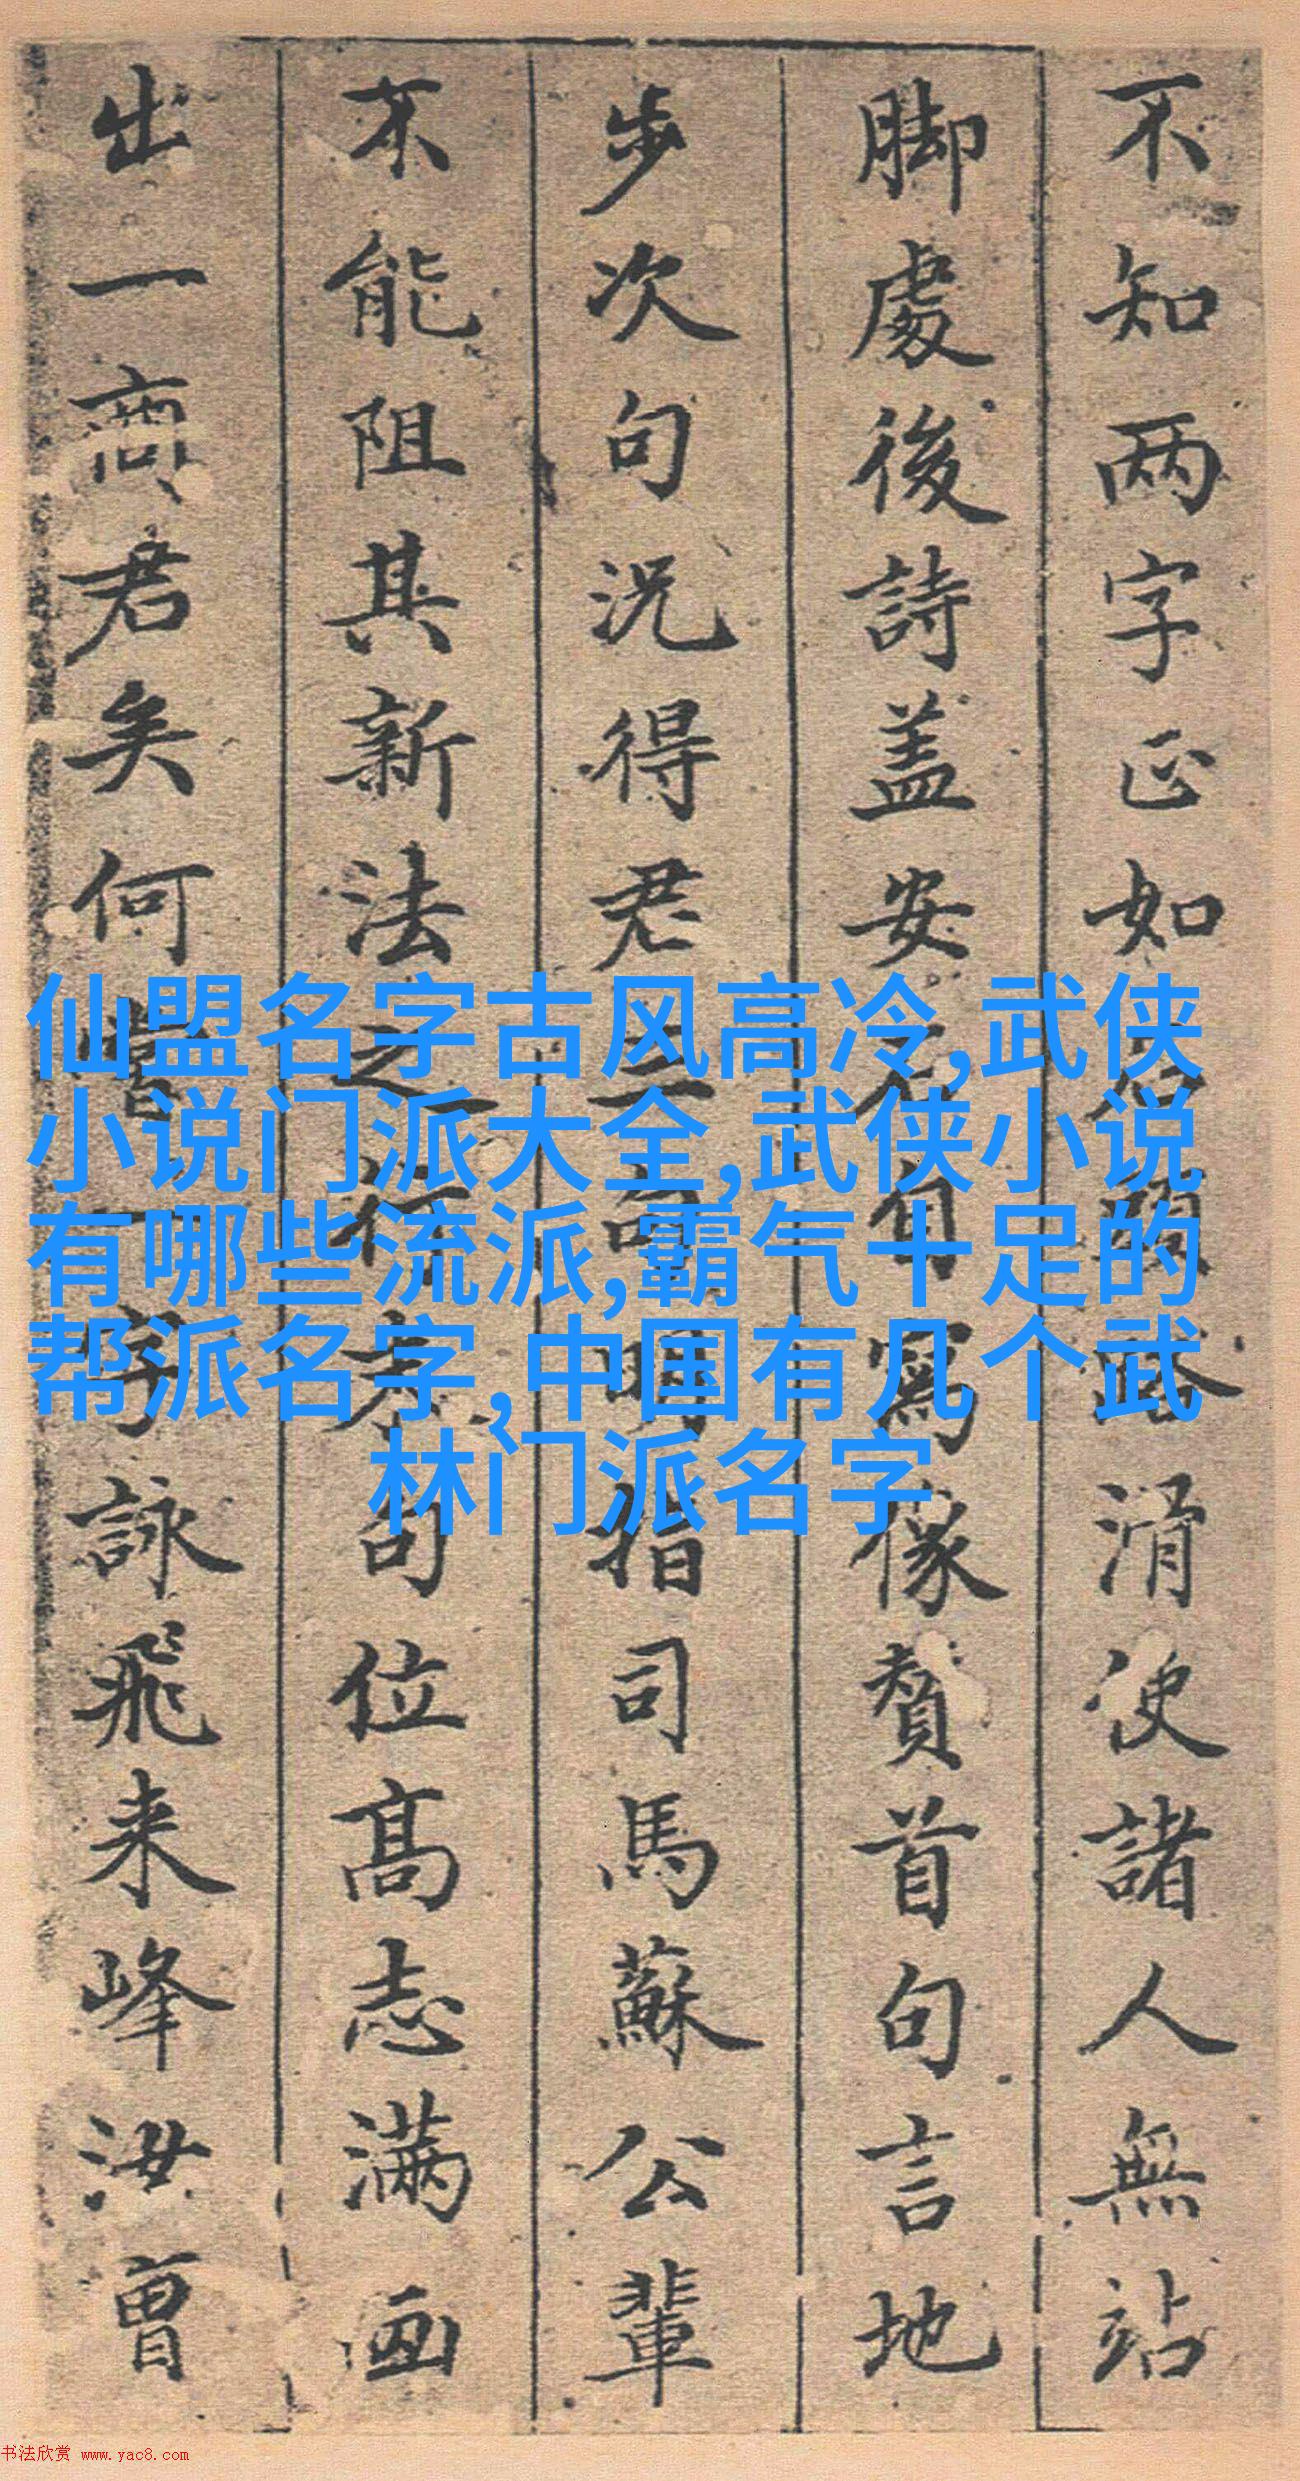 不知两字正如石頭路滑使諸人無站
脚處後詩盖安石自寫像賛首句言地
步次句況得君三句明指司馬蘇公輩
不能阻其新法之行末句位高志满画
出一商君矣何嘗一字詠飛来峰汝曾
仙盟名字古风高冷,武侠
小说门派大全,武侠小说
有哪些流派,霸气十足的
帮派名字,中国有几个武
林门派名字
书法欣赏 www.yac8.com